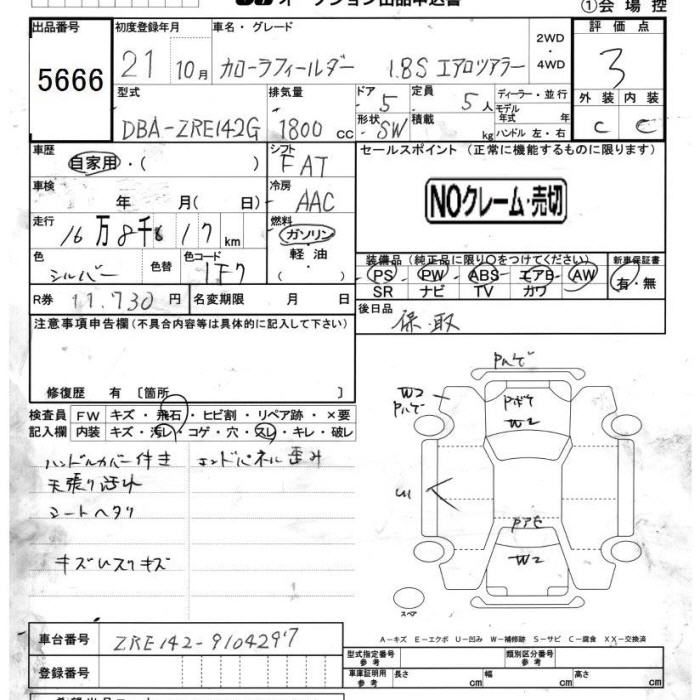 オークション出品申込書
①会場控
出品番号 初度登録年月 車名・グレード 2WD ・ 4WD 評価点
5666 21 10月 カローラフィールダー 1.8S エアロツアラー 3
型式 排気量 ドア 5 定員 5人 ディーラー・並行 外装 内装
DBA-ZRE142G 1800cc 形状 SW 積載 kg モデル年式 年 ハンドル 左・右 C C
車歴 シフト セールスポイント (正常に機能するものに限ります)
自家用・( ) FAT
車検 年 月( 日) 冷房 AAC
NOクレーム・売切
走行 16万8千 17km 燃料 ガソリン・軽油・( )
色 シルバー 色替 色コード 1F7
装備品 (純正品に限り○をつけてください) 新車保証書
PS・PW・ABS・エアB・AW 有・無
SR ナビ TV カワ
R券 11,730円 名変期限 月 日
後日品 保・取
注意事項申告欄(不具合内容等は具体的に記入して下さい)
修復歴 有〔箇所 〕
検査員 FW キズ・飛石・ヒビ割・リペア跡・×要
記入欄 内装 キズ・汚レ・コゲ・穴・スレ・キレ・破レ
ハンドルカバー付き エンドパネル歪み
天張り汚れ
シートヘタリ
キズ
W2
W2
W2
スペア
A-キズ E-エクボ U-凹み W-補修跡 S-サビ C-腐食 XX-交換済
車台番号 ZRE142-9104297
型式指定番号 参考 類別区分番号 参考
登録番号 車庫証明用 参考 長さ cm 幅 cm 高さ cm